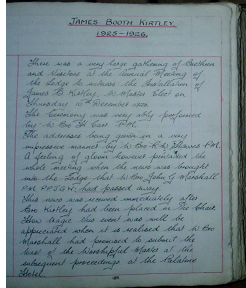 JAMES BOOTH KIRTLEY.
1925-1926.
There was a very large gathering of Brethren
and Visitors at the Annual Meeting of
the Lodge to witness the Installation of
James B. Kirtley, as Master Elect on
Thursday
The Ceremony was very ably performed
by W. Bro
The addresses being given in a very
impressive manner by W. Bro
A feeling of gloom however pervaded the
whole meeting when the news was brought
into the Lodge that W. Bro John G. Marshall
P.M. had passed away.
This news was received immediately after
Bro Kirtley had been placed in the Chair.
How tragic this event was will be
appreciated when it is realised that W. Bro
Marshall had promised to submit the
toast of the Worshipful Master at the
subsequent proceedings at the Palatine
Hotel.